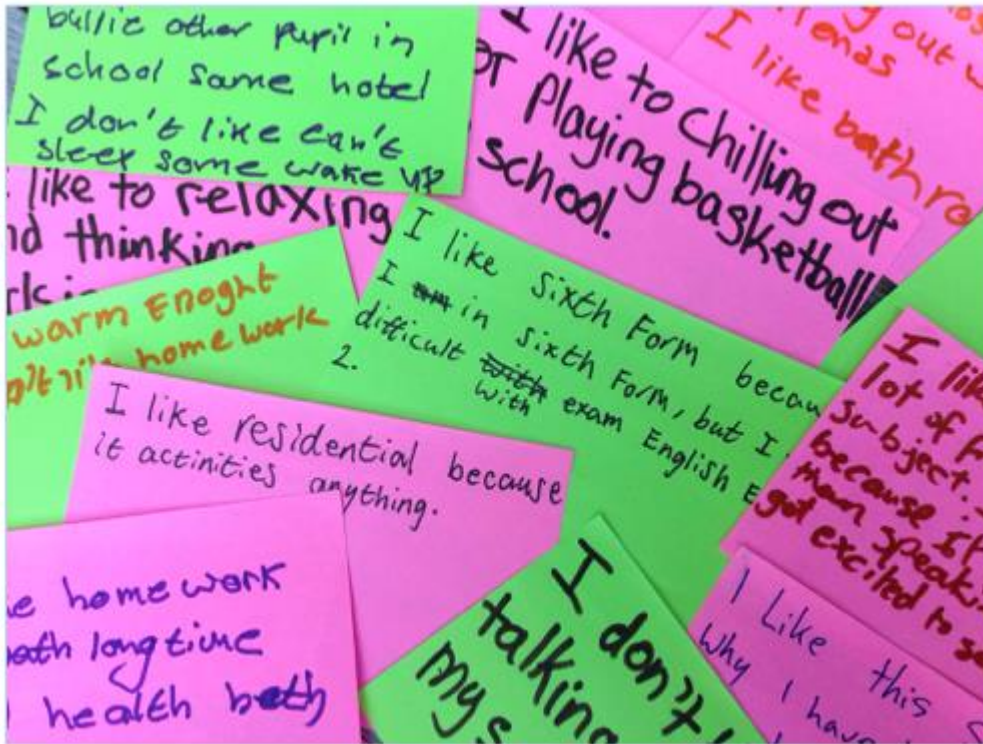 bullie other pupil in
school same hotel
I don't like can't
sleep some wake up
I like to chilling out
or Playing basketball
school.
out
I like bathro
like to relaxing
nd thinking
warm Enoght
homework
I like sixth Form becau
I in sixth Form, but I
difficult with exam English E
2.
I like residential because
it activities anything.
I lik
lot of f
subject.
because if
them speaki
got excited to s
e homework
long time
health
I don't
talking
mys
I Like this S
why I have